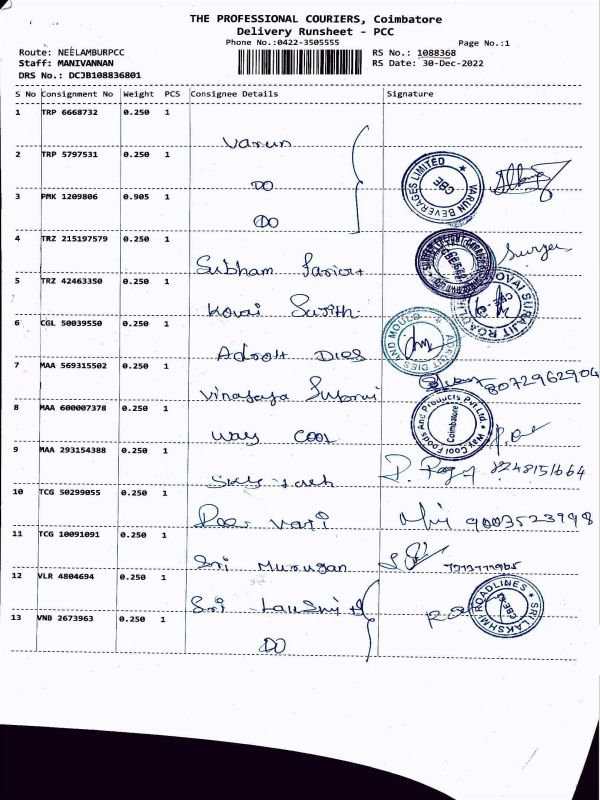 THE PROFESSIONAL COURIERS, Coimbatore
Delivery Runsheet - PCC
Phone No.:0422-3505555 Page No.:1
Route: NEELAMBURPCC RS No.: 1088368
Staff: MANIVANNAN RS Date: 30-Dec-2022
DRS No.: DCJB108836801
S No Consignment No Weight PCS Consignee Details Signature
1 TRP 6668732 0.250 1
Varun
2 TRP 5797531 0.250 1
DO VARUN BEVERAGES LIMITED CBE
3 PMK 1209806 0.905 1
DO
4 TRZ 215197579 0.250 1
Subham
5 TRZ 42463350 0.250 1
Kovai
6 CGL 50039550 0.250 1
Adroit DIES ADROIT DIES AND MOULDS
7 MAA 569315502 0.250 1
Vinayaga 8072962904
8 MAA 600007378 0.250 1
Way Cool Way Cool Foods And Products Pvt Ltd Coimbatore
9 MAA 293154388 0.250 1
8248151664
10 TCG 50299055 0.250 1
9003523998
11 TCG 10091091 0.250 1
Sri Murugan
12 VLR 4804694 0.250 1
Sri SRI LAKSHMI ROADLINES CBE
13 VNB 2673963 0.250 1
DO